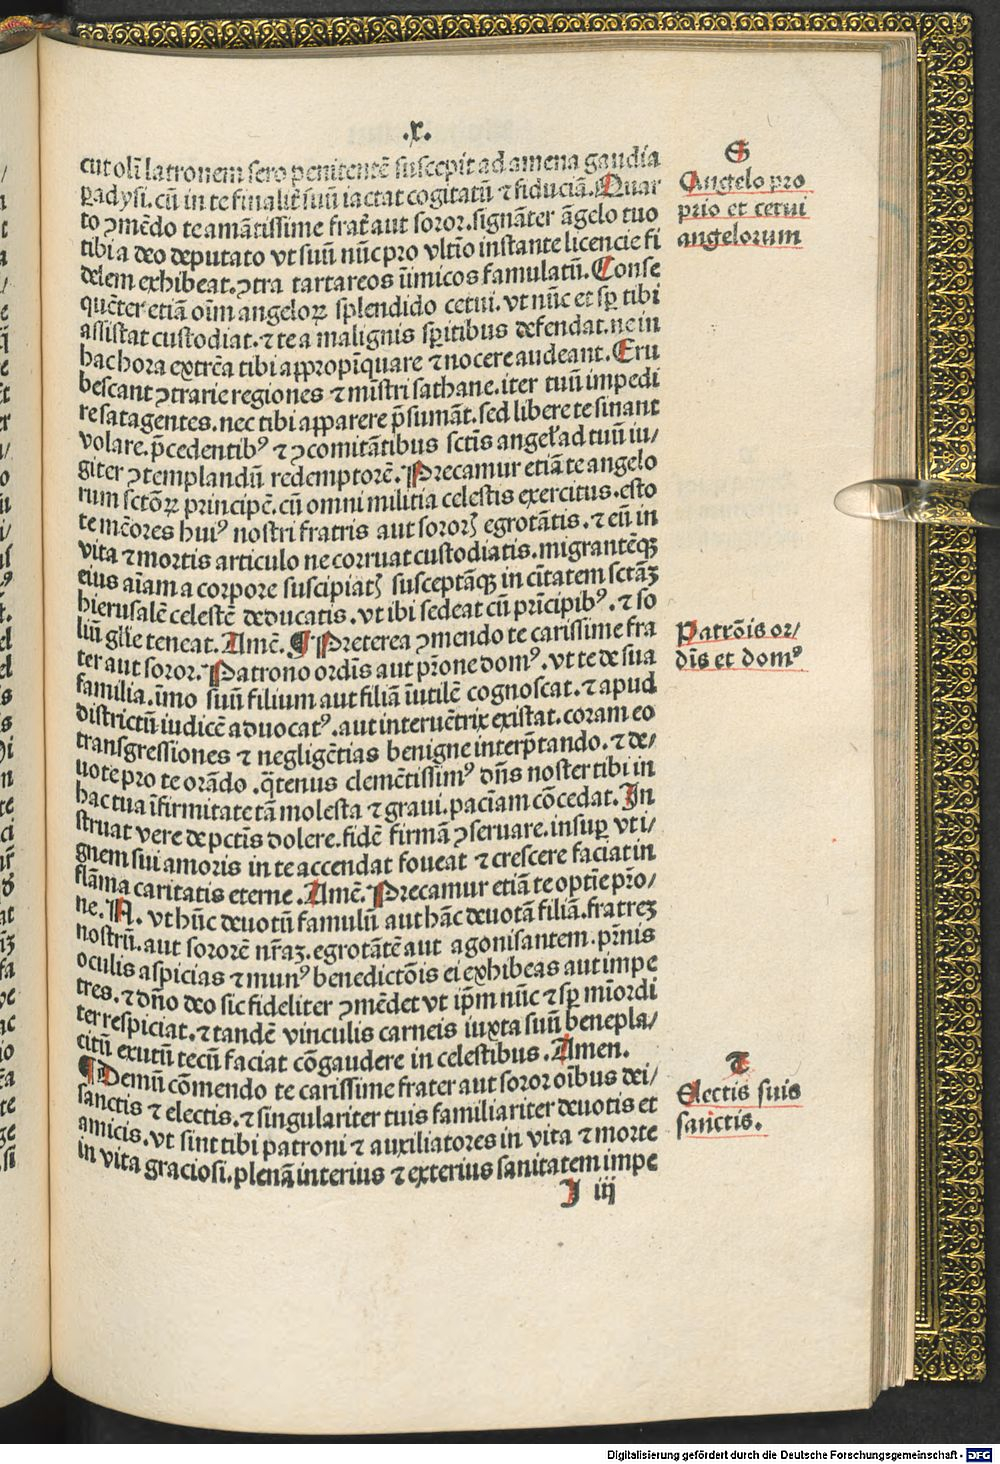 .x.
cut oli͂ latronem sero penitente͂ suscepit ad amena gaudia
ꝑadysi. cu͂ in te finalit͛ suu͂ iactat cogitatu͂ ⁊ fiducia͂. Quar
to ꝯme͂do te ama͂tissime frat͛ aut soror. signa͂ter a͂gelo tuo
tibi a deo deputato vt suu͂ nu͂c pro vlt͂io instante licencie fi
delem exhibeat. ꝯtra tartareos i͂imicos famulatu͂. Conse
que͂ter etia͂ oi͂m angeloꝝ splendido cetui. vt nu͂c et sꝑ tibi
assistat custodiat. ⁊ te a malignis sp͂itibus defendat. ne in
hac hora extre͂a tibi appropi͂quare ⁊ nocere audeant. Eru
bescant ꝯtrarie regiones ⁊ mi͂stri sathane. iter tuu͂ impedi
re satagentes. nec tibi apparere p͂suma͂t. sed libere te sinant
volare. p͂cedentibꝰ ⁊ ꝯcomita͂tibus sct͂is angel͛ ad tuu͂ iu/
giter ꝯtemplandu͂ redemptore͂. Precamur etia͂ te angelo
rum scto͂ꝝ principe͂. cu͂ omni militia celestis exercitus. esto
te me͂ores huiꝰ nostri fratris aut sororꝭ egrota͂tis. ⁊ eu͂ in
vita ⁊ mortis articulo ne corruat custodiatis. migrante͂qꝫ
eius ai͂am a corpore suscipiatꝭ suscepta͂qꝫ in ci͂tatem scta͂ꝫ
hierusale͂ celeste͂ deducatis. vt ibi sedeat cu͂ pri͂cipibꝰ. ⁊ so
liu͂ gl͂ie teneat. Ame͂. ¶ Preterea ꝯmendo te carissime fra
ter aut soror. Patrono ordi͂s aut pr͂one domꝰ. vt te de sua
familia. i͂mo suu͂ filium aut filia͂ i͂utile͂ cognoscat. ⁊ apud
districtu͂ iudice͂ aduocatꝰ. aut interue͂trix existat. coram eo
transgressiones ⁊ neglige͂tias benigne interp͂tando. ⁊ de/
uote pro te ora͂do. q͂tenus cleme͂tissimꝰ dn͂s noster tibi in
hac tua i͂firmitate ta͂ molesta ⁊ graui. paci͂am co͂cedat. In
struat vere de pct͂is dolere. fide͂ firma͂ ꝯseruare. insuꝑ vt i/
gnem sui amoris in te accendat foueat ⁊ crescere faciat in
fla͂ma caritatis eterne. Ame͂. Precamur etia͂ te opti͂e pr͂o/
ne. N. vt hu͂c deuotu͂ famulu͂ aut ha͂c deuota͂ filia͂. fratreꝫ
nostru͂. aut sorore͂ nr͂aꝫ. egrota͂te͂ aut agonisantem. pr͂nis
oculis aspicias ⁊ munꝰ benedicto͂is ei exhibeas aut impe
tres. ⁊ dn͂o deo sic fideliter ꝯme͂det vt ip͂m nu͂c ⁊ sꝑ mi͂ordi
ter respiciat. ⁊ tande͂ vinculis carneis iuxta suu͂ benepla/
citu͂ exutu͂ tecu͂ faciat co͂gaudere in celestibus. Amen.
¶ Demu͂ co͂mendo te carissime frater aut soror oi͂bus dei/
sanctis ⁊ electis. ⁊ singulariter tuis familiariter deuotis et
amicis. vt sint tibi patroni ⁊ auxiliatores in vita ⁊ morte
in vita graciosi. plena͂ interius ⁊ exterius sanitatem impe
J iij
S
Angelo pro
prio et cetui
angelorum
Patro͂is or/
di͂s et domꝰ
T
Electis suis
sanctis.
Digitalisierung gefördert durch die Deutsche Forschungsgemeinschaft - DFG